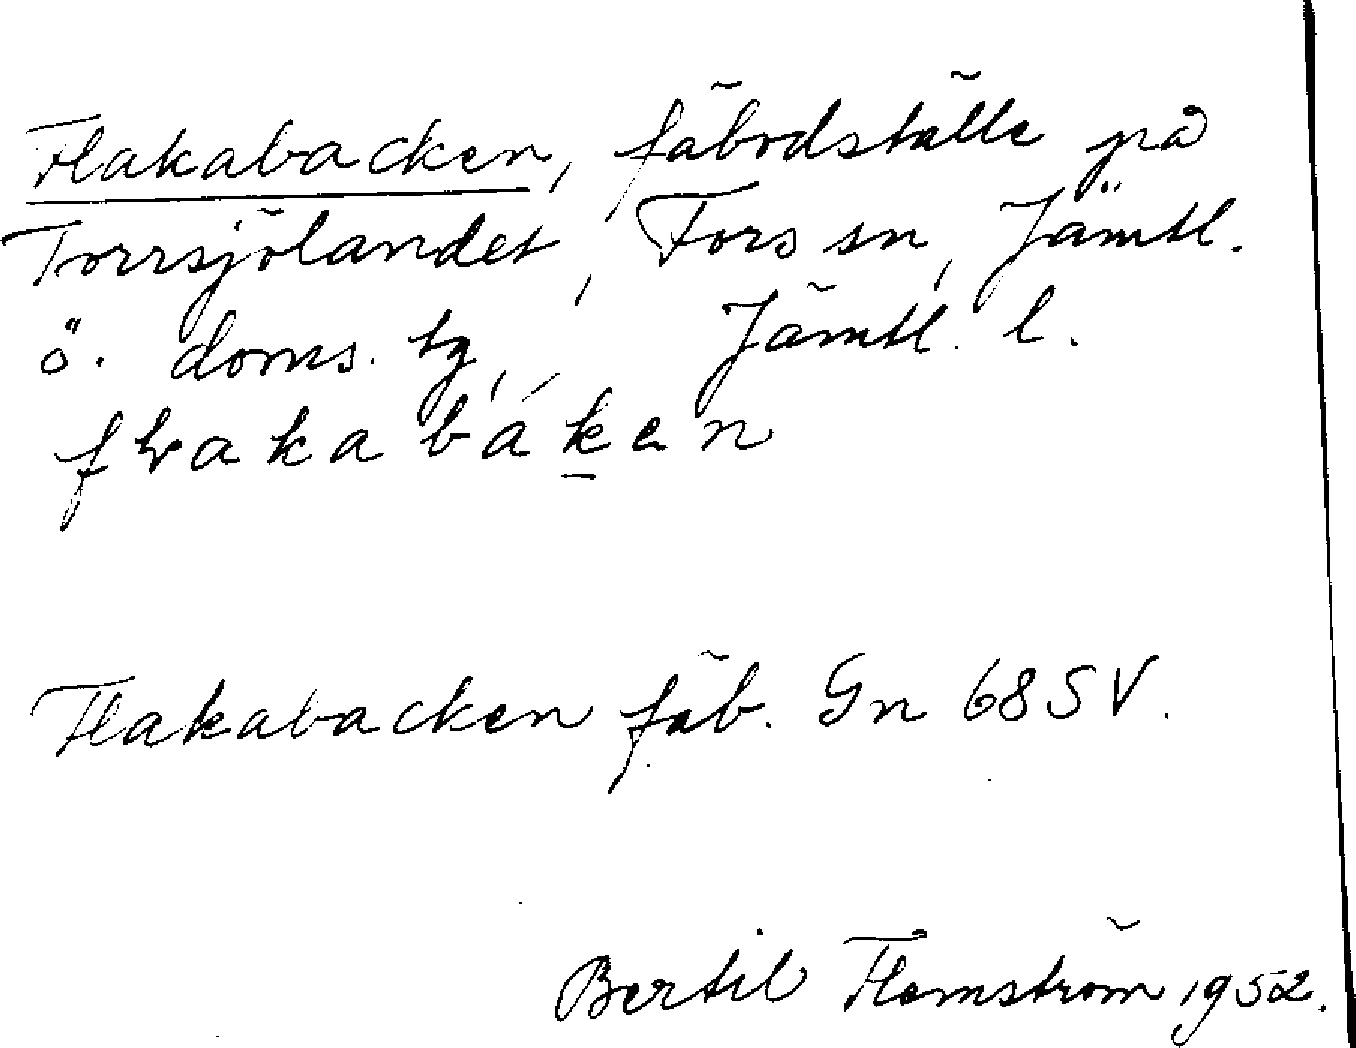 Flakabacken, fäbodställe på
Torrsjölandet, Fors sn, Jämtl.
ö. doms. tg, Jämtl. l.
Flakabacken fäb. Gn 68 SV.
Bertil Flemström 1952.